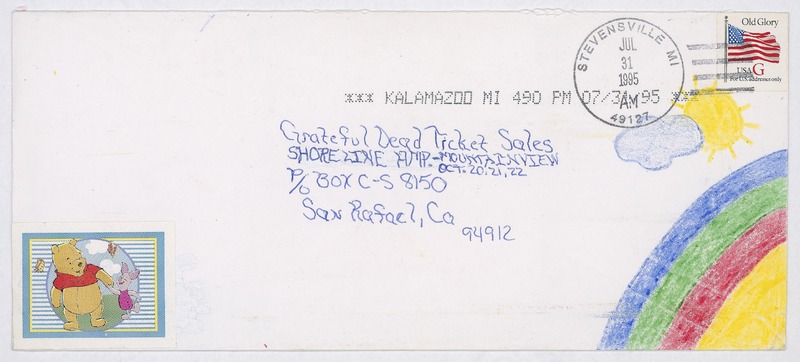 Old Glory
USA G
For U.S. addresses only
STEVENSVILLE MI
JUL
31
1995
AM
49127
*** KALAMAZOO MI 490 PM 07/31/95 ***
Grateful Dead Ticket Sales
SHORELINE AMP. - MOUNTAINVIEW
OCT. 20, 21, 22
P/O BOX C-S 8150
San Rafael, Ca
94912